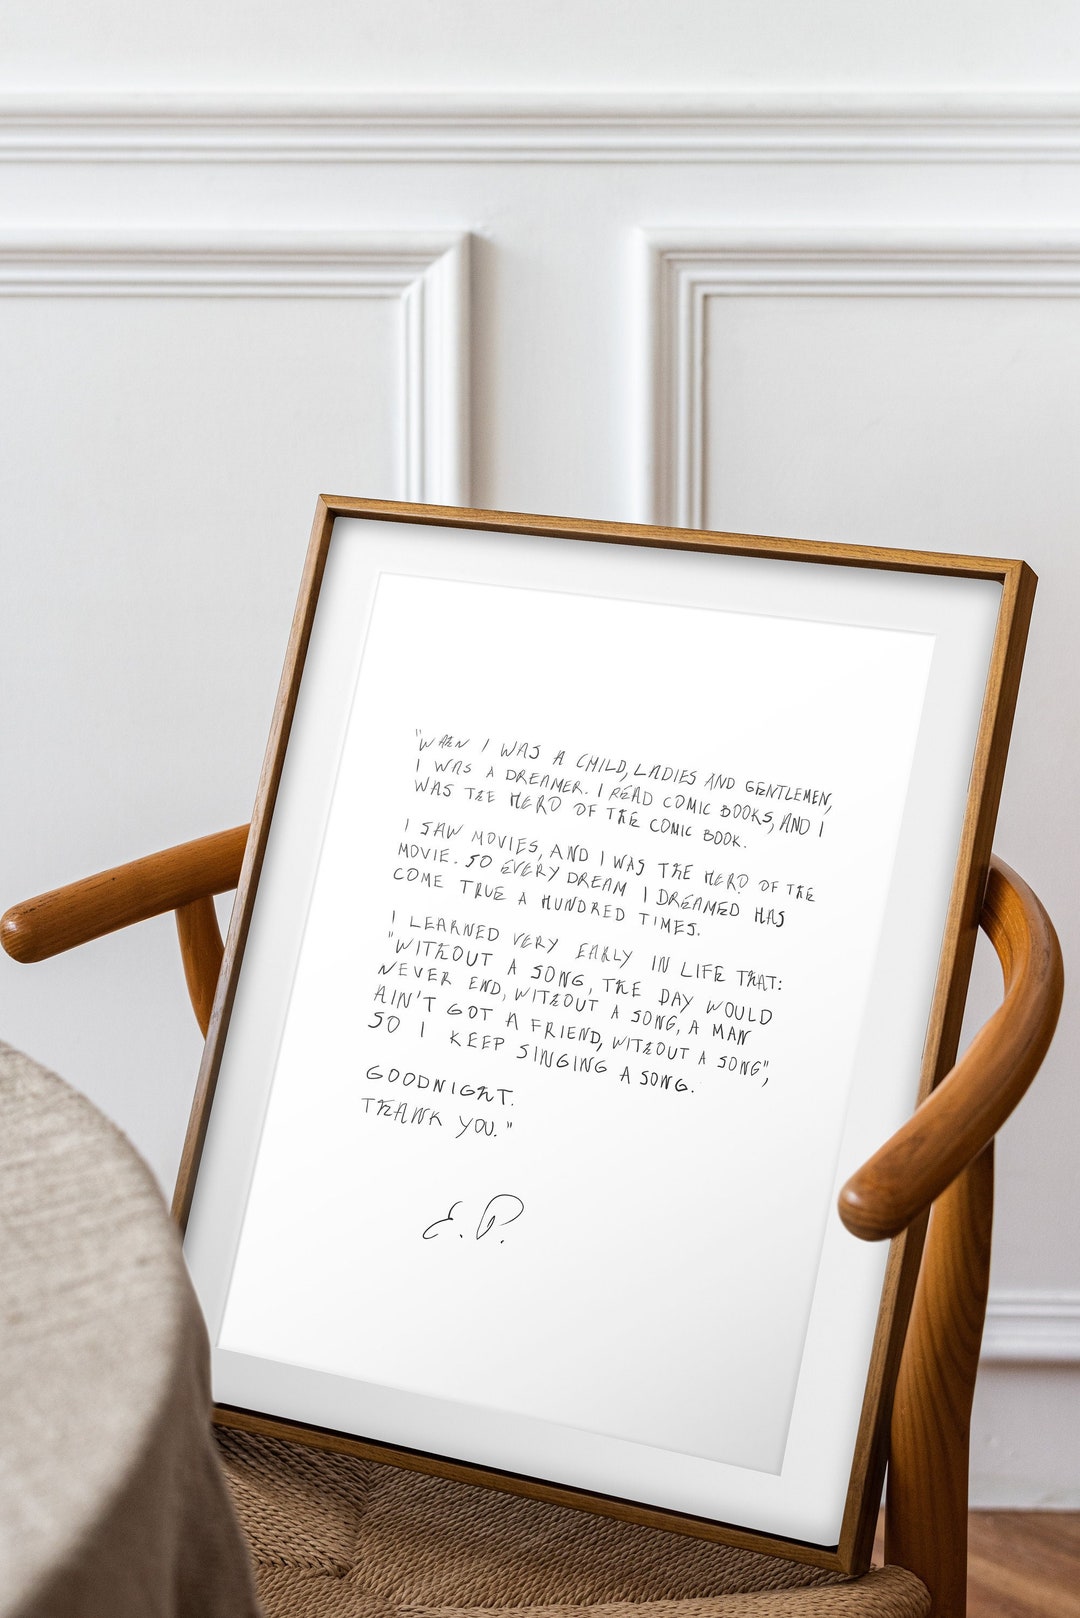 "WHEN I WAS A CHILD, LADIES AND GENTLEMEN,
I WAS A DREAMER. I READ COMIC BOOKS, AND I
WAS THE HERO OF THE COMIC BOOK.
I SAW MOVIES, AND I WAS THE HERO OF THE
MOVIE. SO EVERY DREAM I DREAMED HAS
COME TRUE A HUNDRED TIMES.
I LEARNED VERY EARLY IN LIFE THAT:
"WITHOUT A SONG, THE DAY WOULD
NEVER END, WITHOUT A SONG, A MAN
AIN'T GOT A FRIEND, WITHOUT A SONG",
SO I KEEP SINGING A SONG.
GOODNIGHT.
THANK YOU."
E.P.